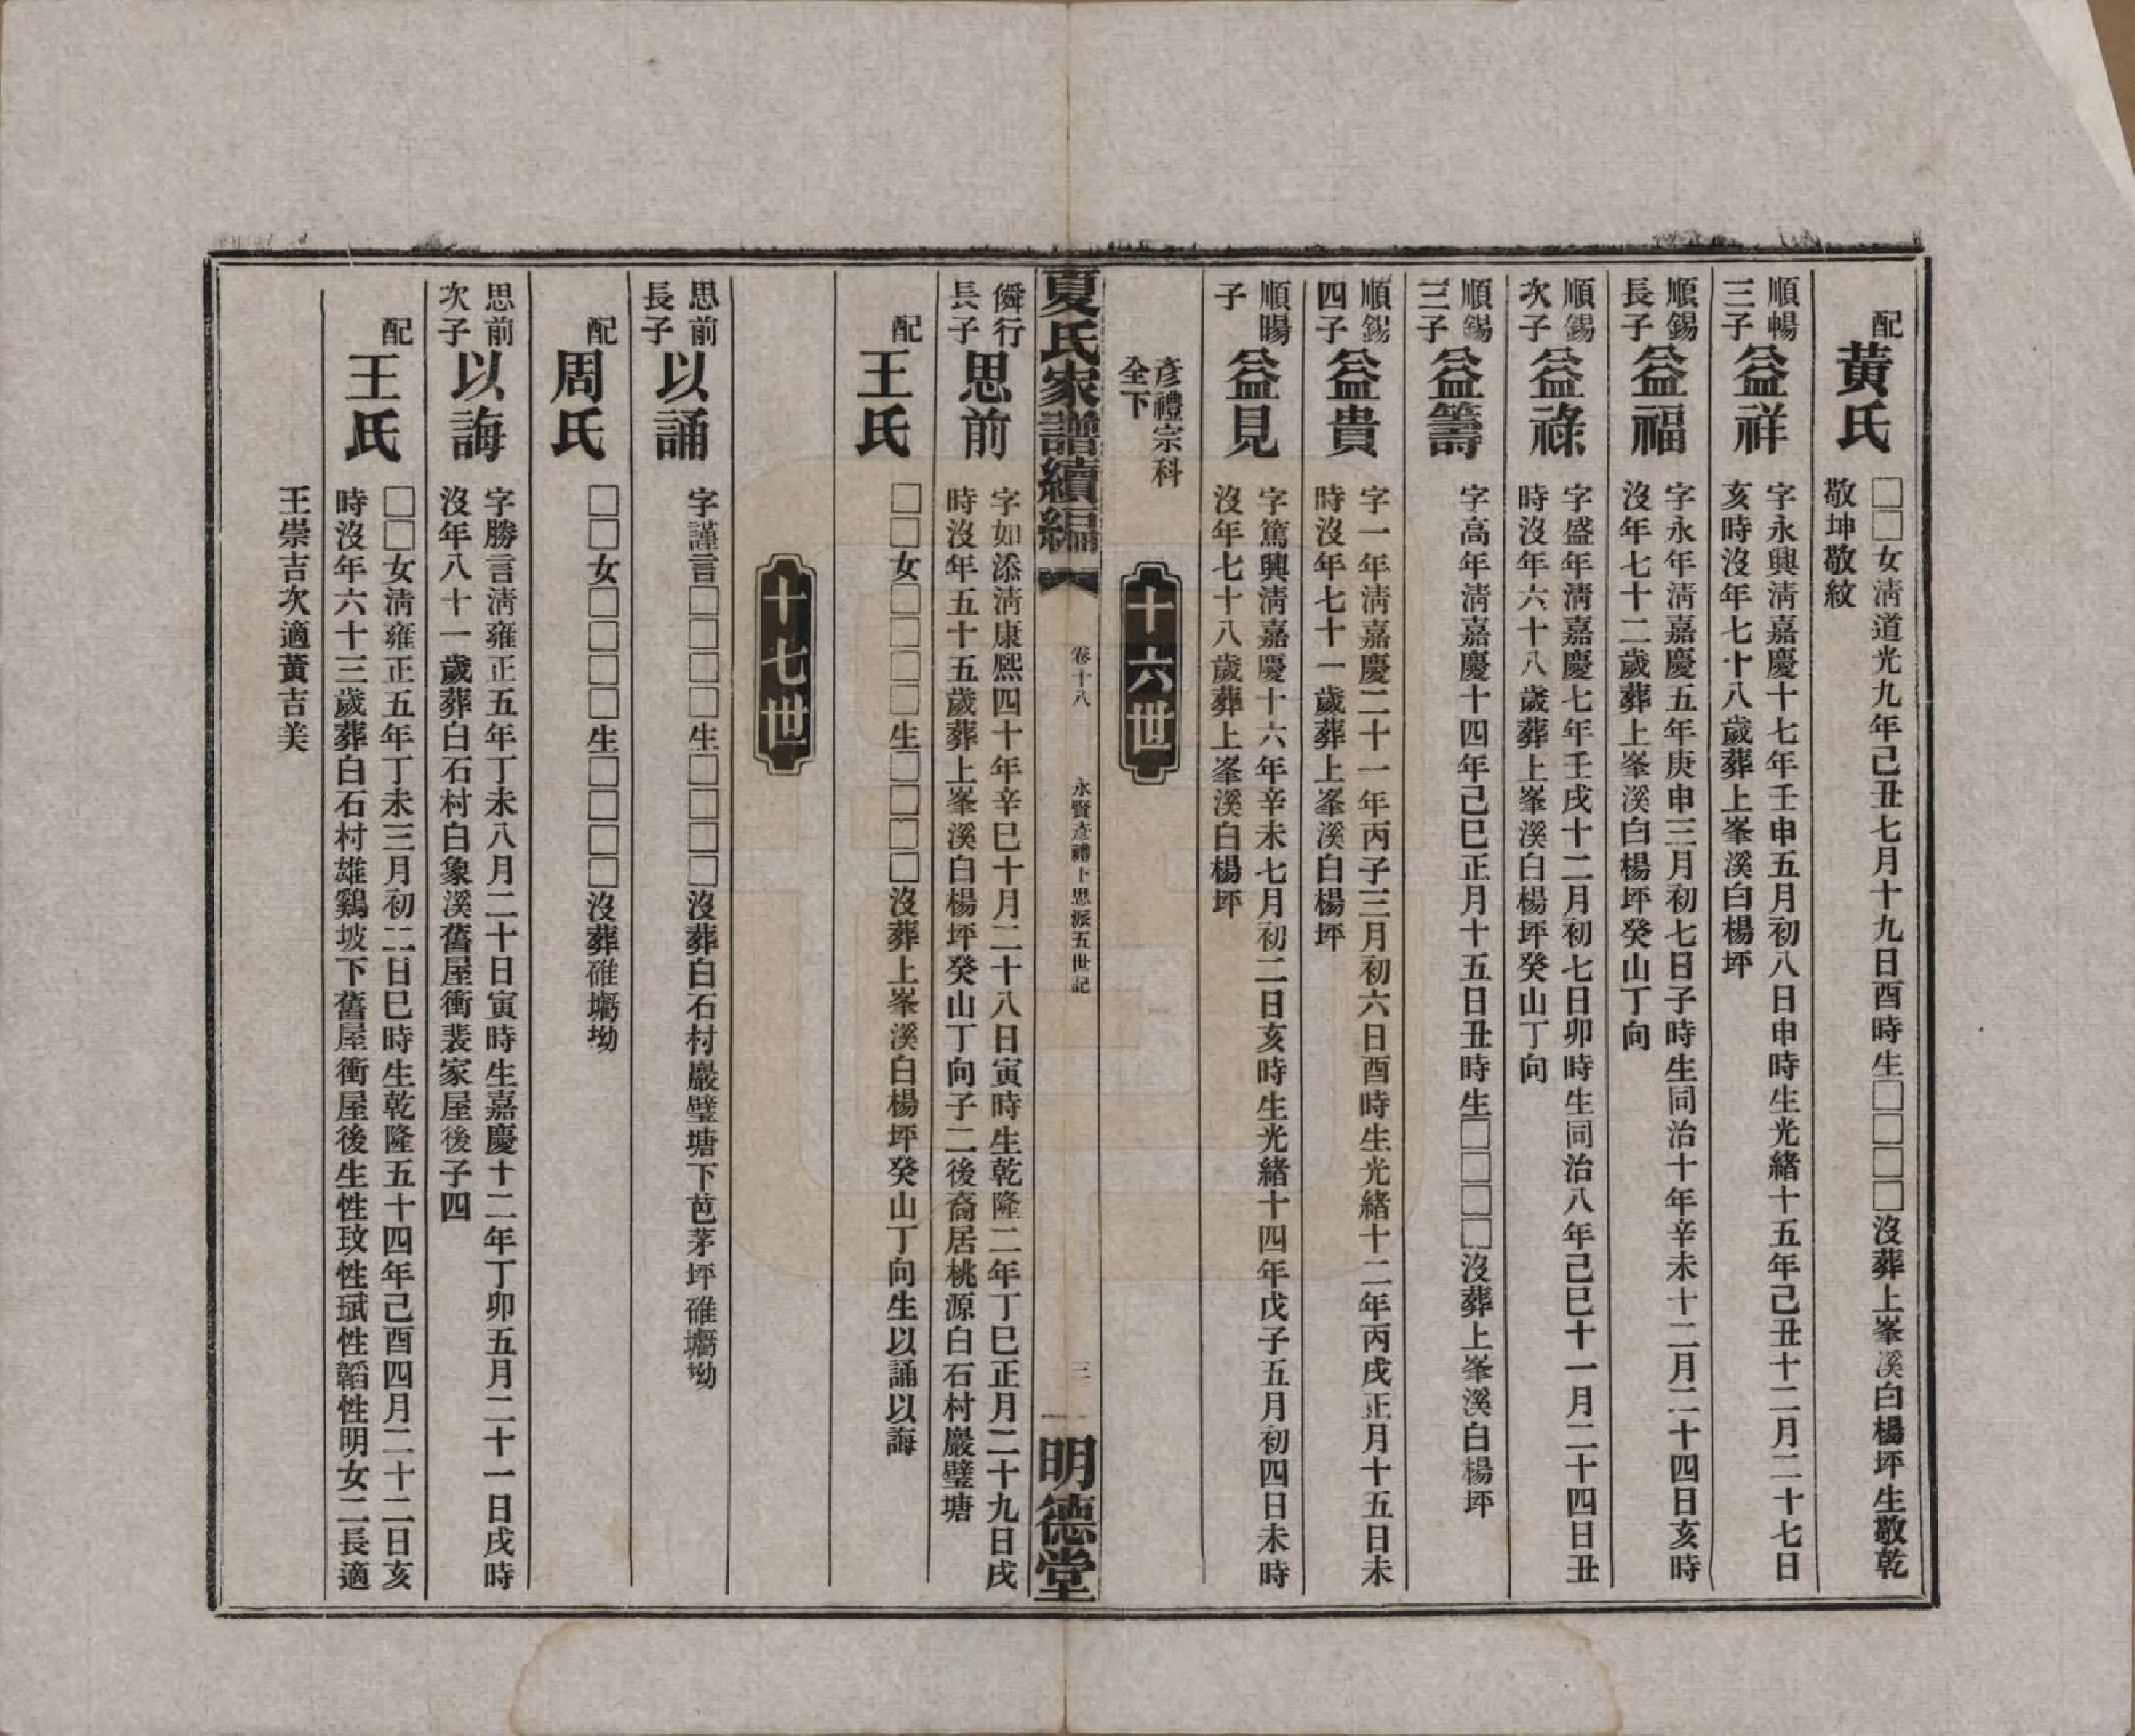 配
黃氏
□□女淸道光九年己丑七月十九日酉時生□□□□沒葬上峯溪白楊坪生敬乾
敬坤敬紋
順暢
三子
益祥
字永興淸嘉慶十七年壬申五月初八日申時生光緒十五年己丑十二月二十七日
亥時沒年七十八歲葬上峯溪白楊坪
順錫
長子
益福
字永年淸嘉慶五年庚申三月初七日子時生同治十年辛未十二月二十四日亥時
沒年七十二歲葬上峯溪白楊坪癸山丁向
順錫
次子
益祿
字盛年淸嘉慶七年壬戌十二月初七日卯時生同治八年己巳十一月二十四日丑
時沒年六十八歲葬上峯溪白楊坪癸山丁向
順錫
三子
益籌
字高年淸嘉慶十四年己巳正月十五日丑時生□□□□沒葬上峯溪白楊坪
順錫
四子
益貴
字一年淸嘉慶二十一年丙子三月初六日酉時生光緒十二年丙戌正月十五日未
時沒年七十一歲葬上峯溪白楊坪
順暘
子
益見
字篤興淸嘉慶十六年辛未七月初二日亥時生光緒十四年戊子五月初四日未時
沒年七十八歲葬上峯溪白楊坪
彦禮宗科
全下
十六世
夏氏家譜續編
卷十八
永賢彦禮下思派五世記
三
明德堂
僯行
長子
思前
字如添淸康熙四十年辛巳十月二十八日寅時生乾隆二年丁巳正月二十九日戌
時沒年五十五歲葬上峯溪白楊坪癸山丁向子二後裔居桃源白石村巖璧塘
配
王氏
□□女□□□□生□□□□沒葬上峯溪白楊坪癸山丁向生以誦以誨
十七世
思前
長子
以誦
字謹言□□□□生□□□□沒葬白石村巖璧塘下芭茅坪碓壪坳
配
周氏
□□女□□□□生□□□□沒葬碓壪坳
思前
次子
以誨
字勝言淸雍正五年丁未八月二十日寅時生嘉慶十二年丁卯五月二十一日戌時
沒年八十一歲葬白石村白象溪舊屋衝裴家屋後子四
配
王氏
□□女淸雍正五年丁未三月初二日巳時生乾隆五十四年己酉四月二十二日亥
時沒年六十三歲葬白石村雄鷄坡下舊屋衝屋後生性玟性珷性韜性明女二長適
王崇吉次適黃吉美